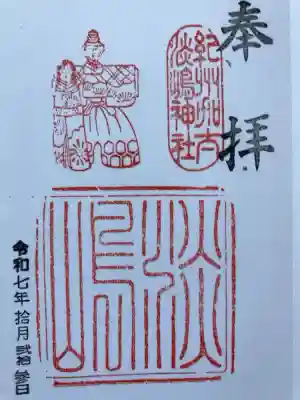 奉拝
紀州加太
淡嶋神社
淡嶋
令和七年 拾月 弐拾参日